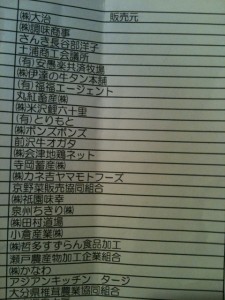 ㈱大治 販売元
㈱隅味商事
さんぎ長谷部洋子
土浦商工会議所
(有)安愚楽共済牧場
㈱伊達の牛タン本舗
(有)福福エージェント
丸虹畜産㈱
㈱米沢観六十里
(有)とりもと
㈱ポンズポンズ
前沢牛オガタ
㈱会津地鶏ネット
寺岡畜産㈱
㈱カネ吉ヤマモトフーズ
京野菜販売協同組合
㈱祇園味幸
泉州ちきり㈱
㈱田村道場
小倉産業㈱
㈱哲多すずらん食品加工
瀬戸農産物加工企業組合
㈱かなわ
アジアンキッチン タージ
大分県椎茸農業協同組合